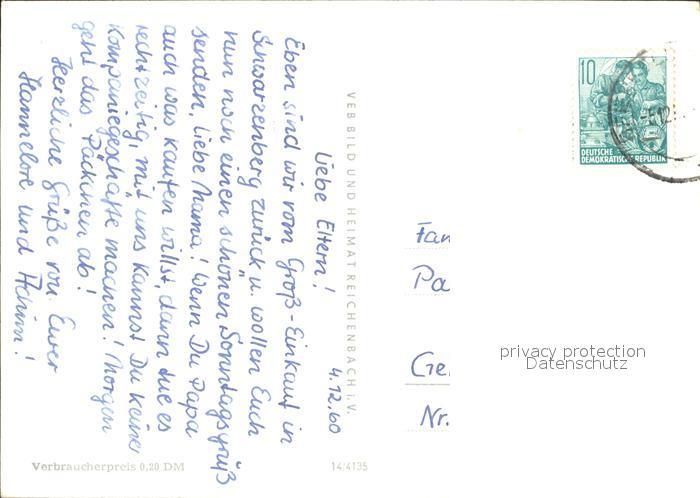 4.12.60
Liebe Eltern!
Eben sind wir vom Groß-Einkauf in
Schwarzenberg zurück u. wollen Euch
nun noch einen schönen Sonntagsgruß
senden, liebe Mama! Wenn Du Papa
auch was kaufen willst, dann tue es
rechtzeitig, mit uns kannst Du keine
Kompaniegeschäfte machen! Morgen
geht das Päckchen ab!
Herzliche Grüße von Euer
Hannelore und Achim!
VEB BILD UND HEIMAT REICHENBACH i.V.
10
DEUTSCHE
DEMOKRATISCHE REPUBLIK
Fam
Pa
Gel
Nr.
privacy protection
Datenschutz
Verbraucherpreis 0,20 DM
14/4135